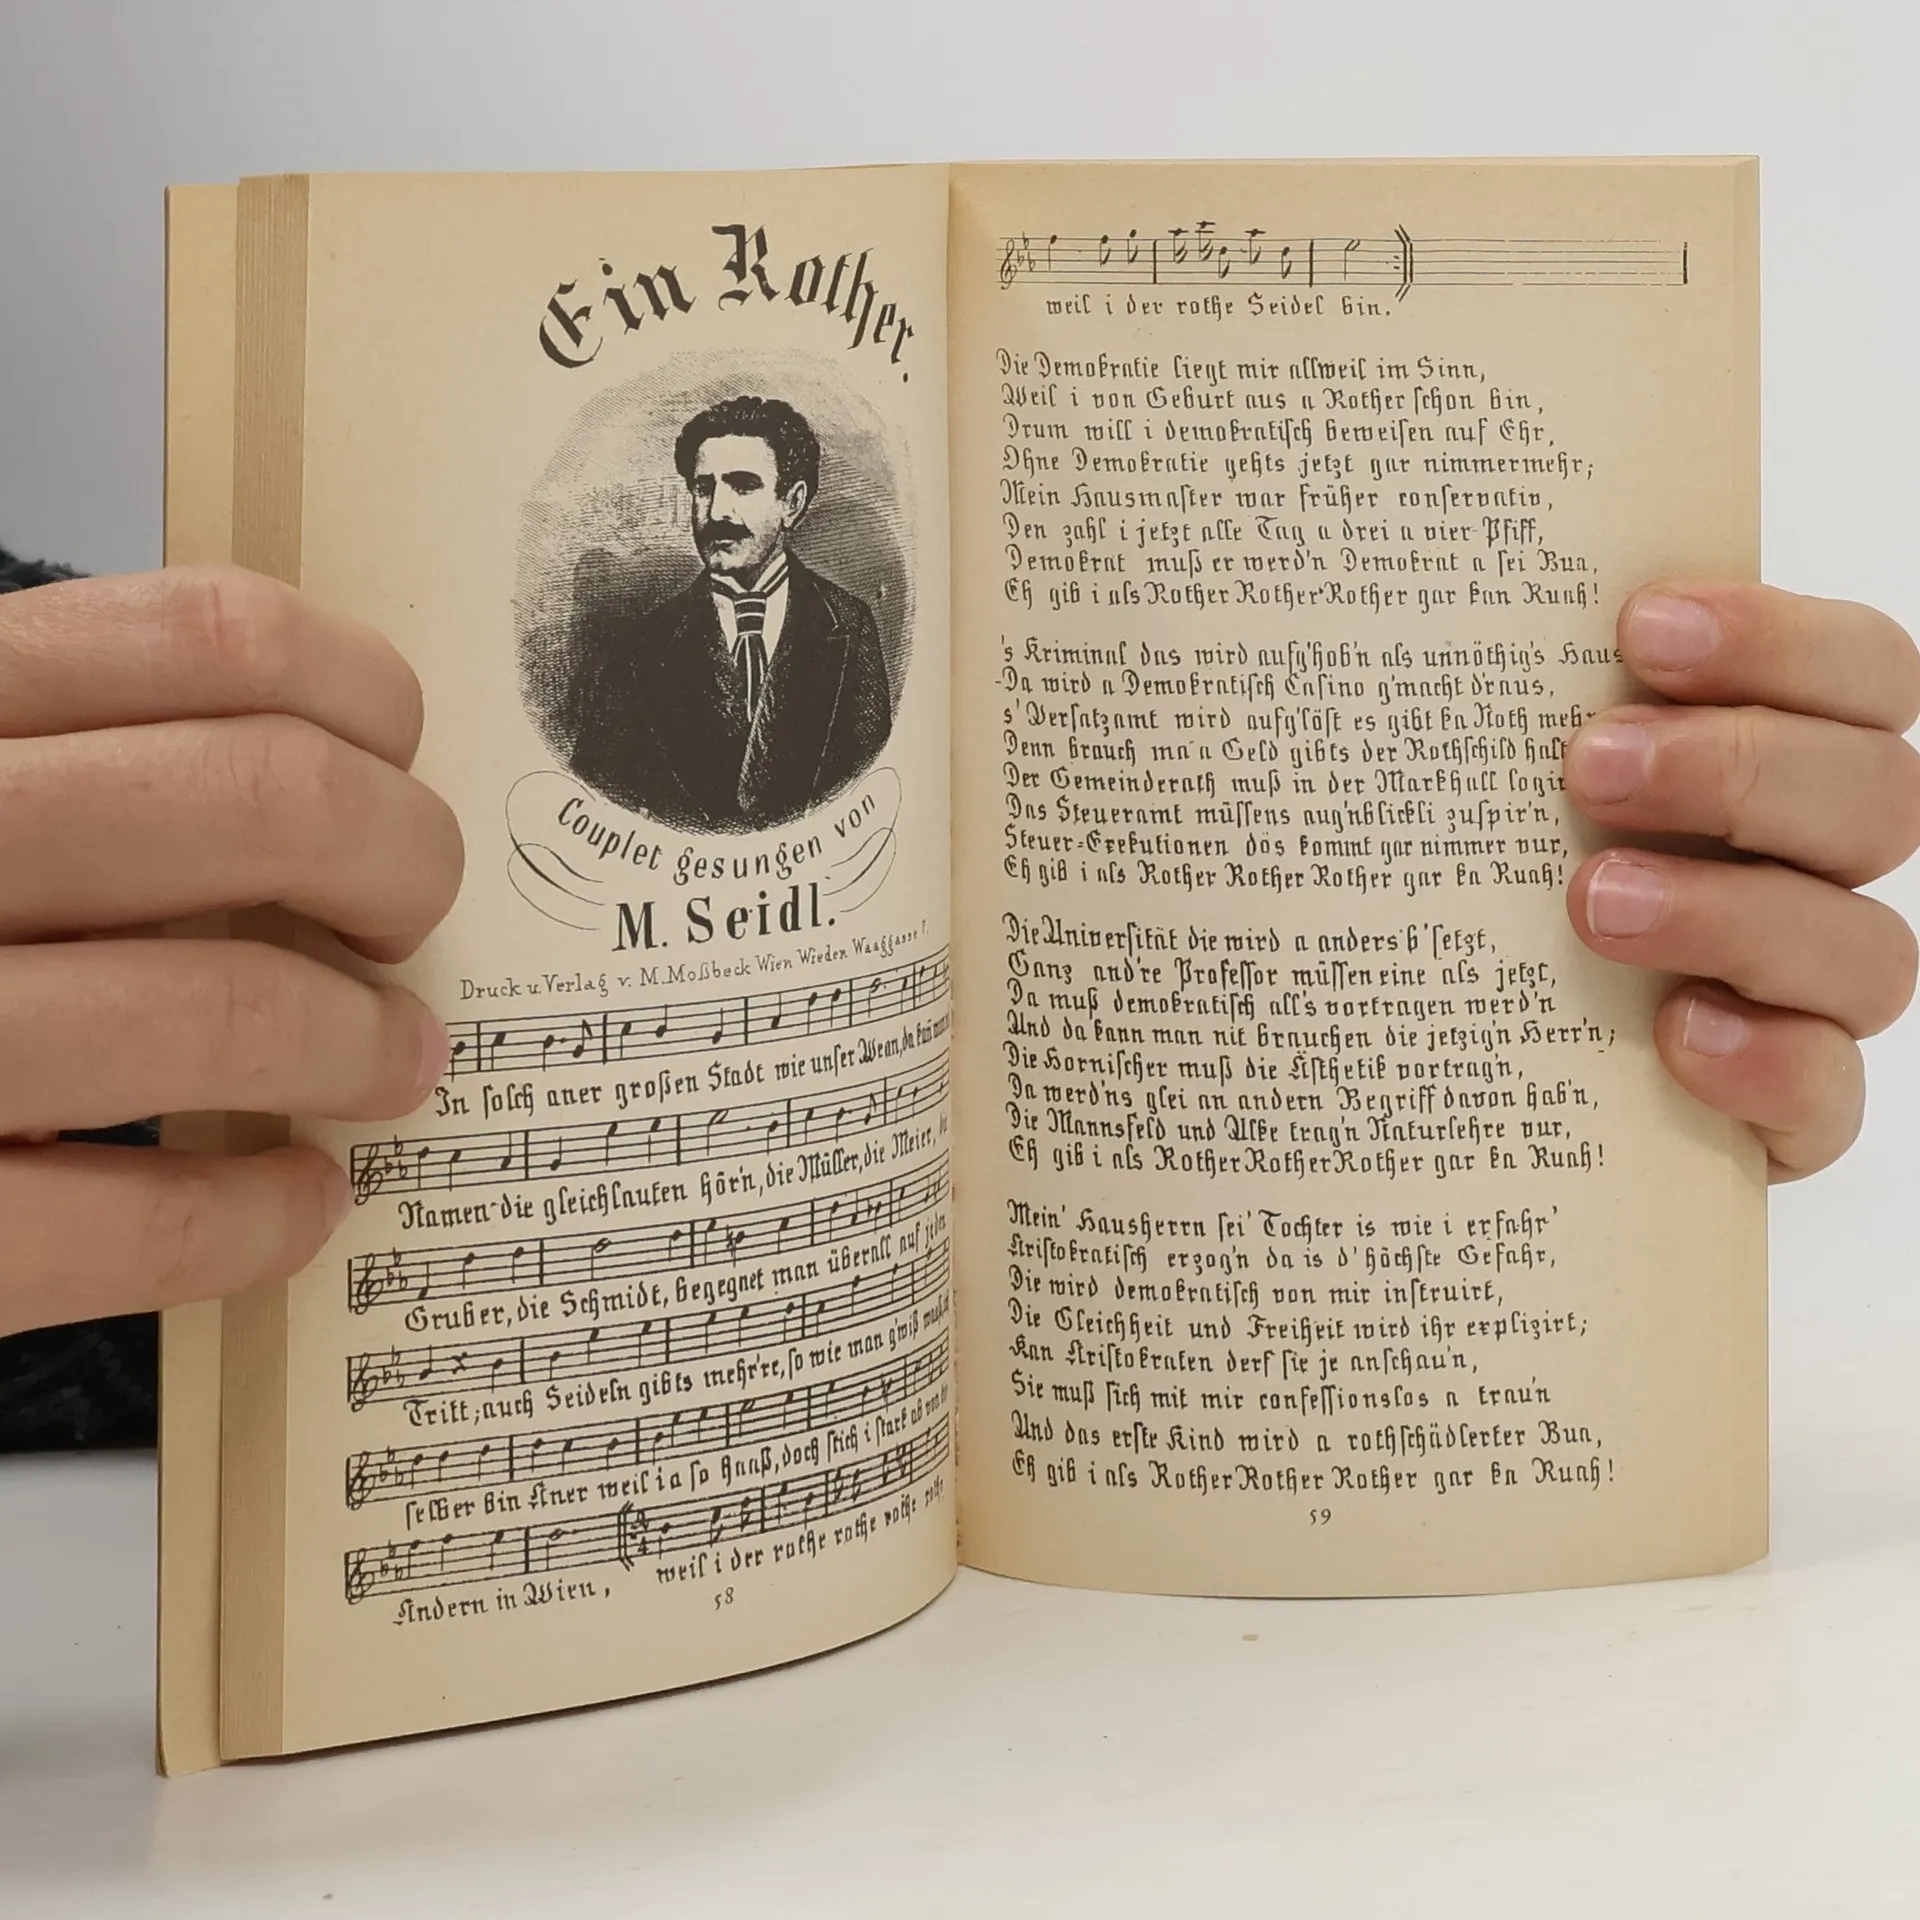 Ein Rother.
Couplet gesungen von
M. Seidl.
Druck u. Verlag v. M. Moßbeck Wien Wieden Waaggasse
In solch aner großen Stadt wie unser Wean, da kann man
Namen die gleichlauten hör'n, die Müller, die Meier,
Gruber, die Schmidt, begegnet man überall auf jeden
Tritt; auch Seideln gibts mehr're, so wie man g'wiß
selber bin Aner weil i a so haaß, doch stich i stark ab von
Andern in Wien, weil i der rothe rothe rothe
58
weil i der rothe Seidel bin.
Die Demokratie liegt mir allweil im Sinn,
Weil i von Geburt aus a Rother schon bin,
Drum will i demokratisch beweisen auf Ehr,
Ohne Demokratie gehts jetzt gar nimmermehr;
Mein Hausmaster war früher conservativ,
Den zahl i jetzt alle Tag a drei a vier Pfiff,
Demokrat muß er werd'n Demokrat a sei Bua,
Eh gib i als Rother Rother Rother gar kan Ruah!
's Kriminal das wird aufg'hob'n als unnöthig's Haus
Da wird a Demokratisch Casino g'macht d'raus,
s' Versatzamt wird aufg'löst es gibt ka Noth mehr
Denn brauch ma a Geld gibts der Rothschild
Der Gemeinderath muß in der Markhall
Das Steueramt müssens aug'nblickli zuspir'n,
Steuer-Exekutionen dös kommt gar nimmer vur,
Eh gib i als Rother Rother Rother gar ka Ruah!
Die Universität die wird a anders b'setzt,
Ganz and're Professor müssen eine als jetzt,
Da muß demokratisch all's vortragen werd'n
Und da kann man nit brauchen die jetzig'n Herr'n;
Die Hornischer muß die Ästhetik vortrag'n,
Da werd'ns glei an andern Begriff davon hab'n,
Die Mannsfeld und Ulke trag'n Naturlehre vur,
Eh gib i als Rother Rother Rother gar ka Ruah!
Mein' Hausherrn sei' Tochter is wie i erfahr'
Aristokratisch erzog'n da is d' höchste Gefahr,
Die wird demokratisch von mir instruirt,
Die Gleichheit und Freiheit wird ihr explizirt;
Kan Aristokraten derf sie je anschau'n,
Sie muß sich mit mir confessionslos a trau'n
Und das erste Kind wird a rothschädlerter Bua,
Eh gib i als Rother Rother Rother gar ka Ruah!
59